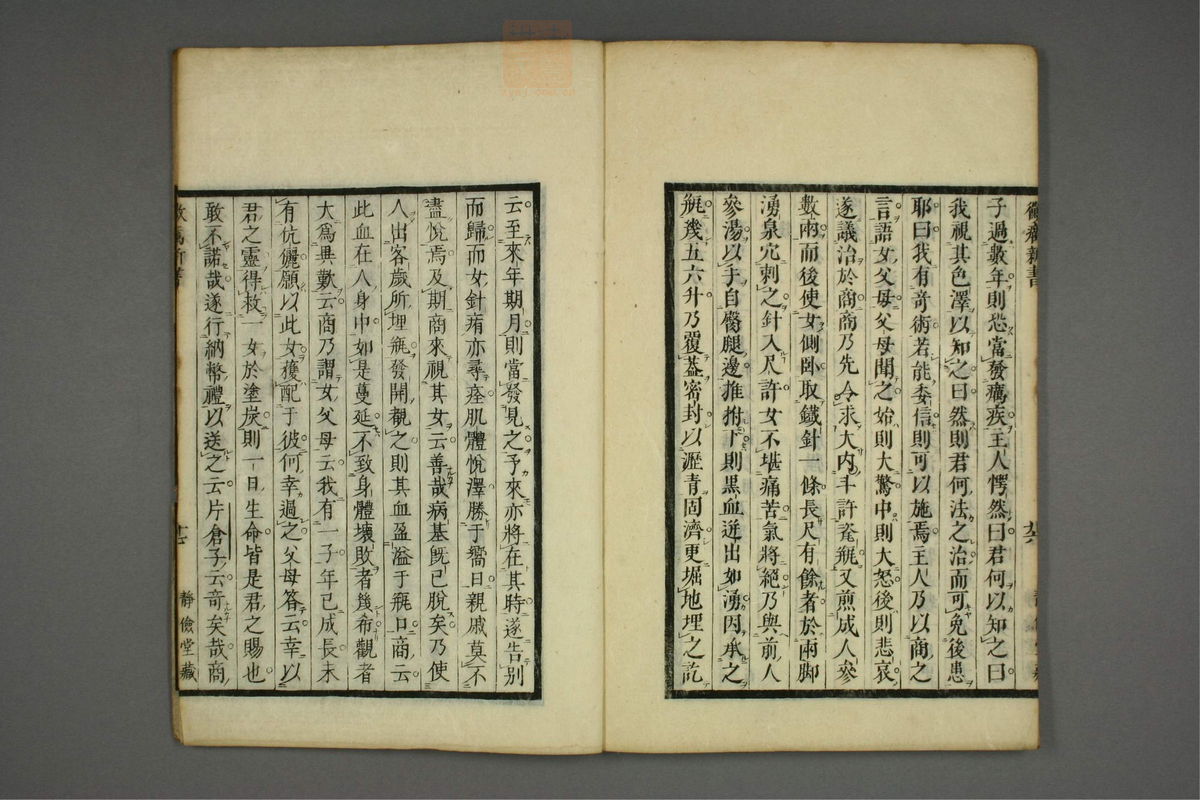 子過數年則恐當發癘疾主人愕然曰君何以知之曰
我視其色澤以知之曰然則君何法之治而可免後患
耶曰我有奇術若能委信則可以施焉主人乃以商之
言語女父母父母聞之始則大驚中則大怒後則悲哀
遂議治於商商乃先令求大内斗許甕瓶又煎成人參
數兩而後使女側臥取鐵針一條長尺有餘者於兩脚
湧泉穴刺之針入尺許女不堪痛苦氣將絕乃與前人
參湯以手自臀腿邊推拊下則黑血迸出如湧因承之
瓶幾五六升乃覆葢密封以瀝青固濟更堀地埋之訖
靜儉堂藏
云至來年期月則當發見之予來亦將在其時遂告別
而歸而女針痏亦尋痊肌體悅澤勝于嚮日親戚莫不
盡悅焉及期商來視其女云善哉病基既已脫矣乃使
人出客歲所埋瓶發開觀之則其血盈溢于瓶口商云
此血在人身中如是蔓延不致身體壞敗者幾希觀者
大爲異歎云商乃謂女父母云我有一子年已成長未
有伉儷願以此女獲配于彼何幸過之父母答云幸以
君之靈得救一女於塗炭則一日生命皆是君之賜也
敢不諾哉遂行納幣禮以送之云片倉子云奇矣哉商
靜儉堂藏